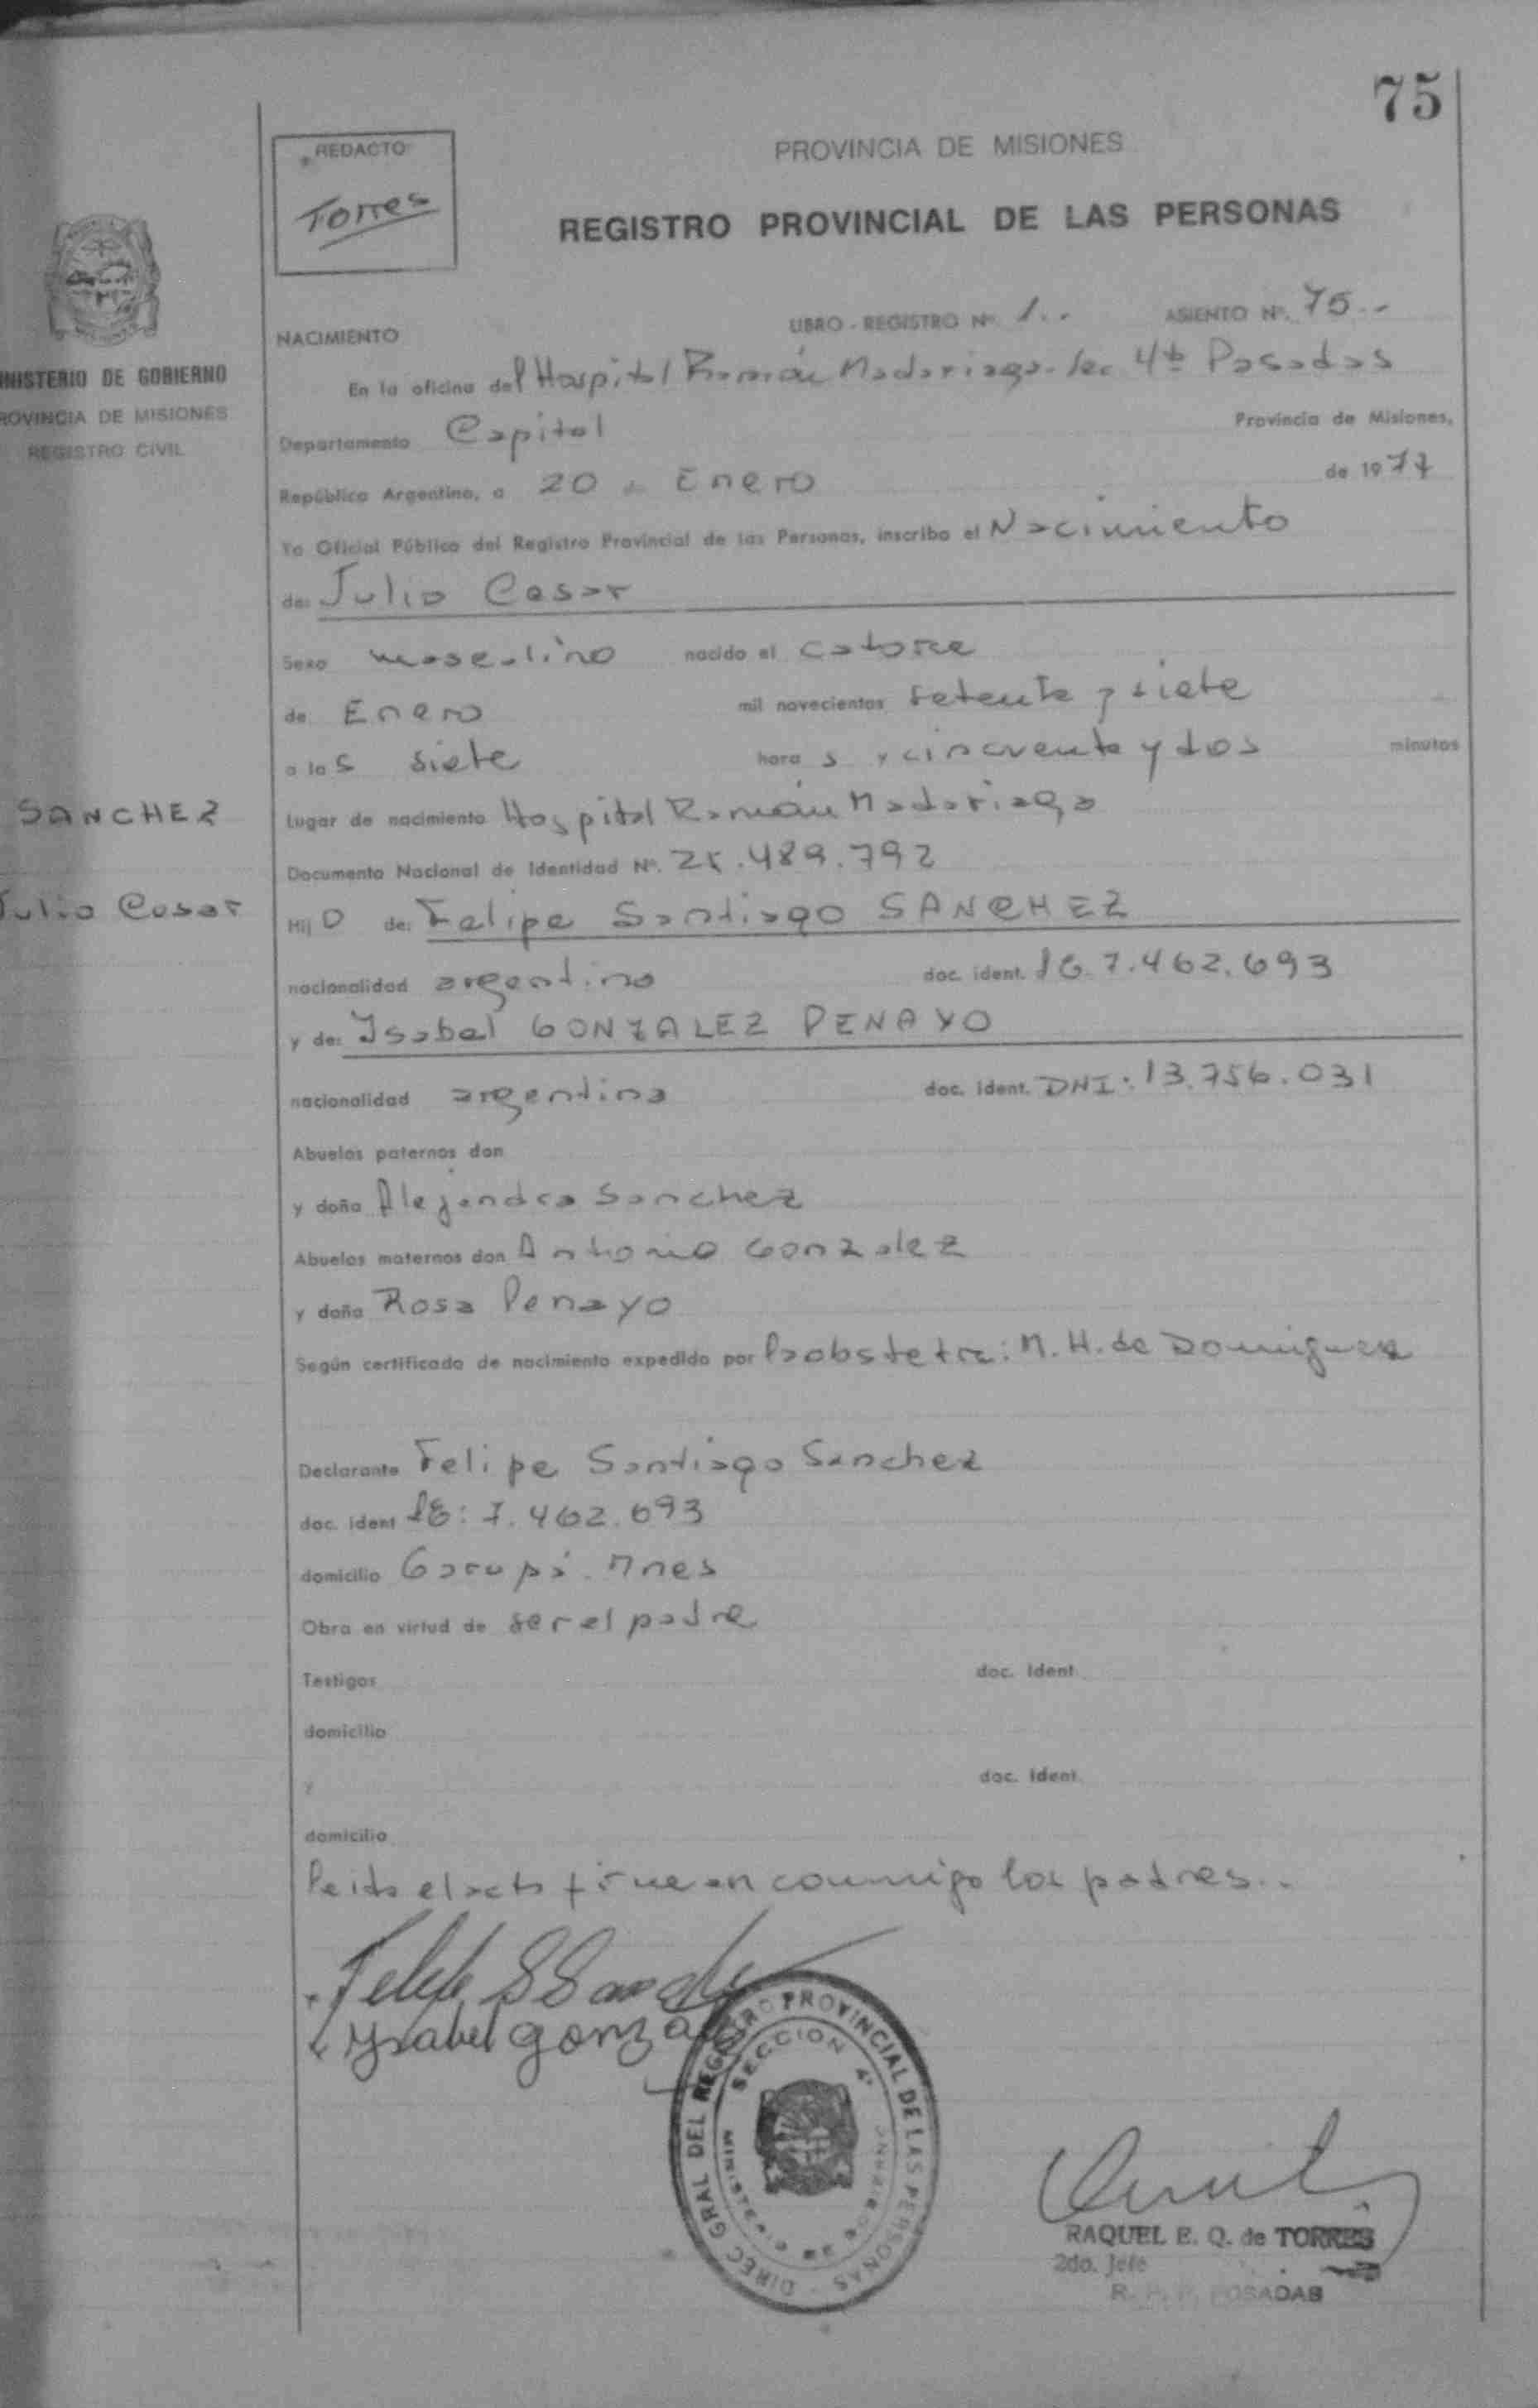 75
REDACTO
Torres
PROVINCIA DE MISIONES
REGISTRO PROVINCIAL DE LAS PERSONAS
MINISTERIO DE GOBIERNO
PROVINCIA DE MISIONES
REGISTRO CIVIL
NACIMIENTO LIBRO - REGISTRO Nº 1.. ASIENTO Nº. 75..
En la oficina del Hospital Ramón Madariaga - Sec 4ta Posadas
Departamento Capital Provincia de Misiones,
República Argentina, a 20 de Enero de 1977
Yo Oficial Público del Registro Provincial de las Personas, inscribo el Nacimiento
de: Julio Cesar
Sexo masculino nacido el catorce
de Enero mil novecientos setenta y siete
a las siete horas y cincuenta y dos minutos
SANCHEZ
Lugar de nacimiento Hospital Ramón Madariaga
Documento Nacional de Identidad Nº. 25.489.792
Julio Cesar
Hijo de: Felipe Santiago SANCHEZ
nacionalidad argentino doc. ident. LE 7.462.693
y de: Isabel GONZALEZ PENAYO
nacionalidad argentina doc. ident. DNI: 13.756.031
Abuelos paternos don
y doña Alejandra Sanchez
Abuelos maternos don Antonio Gonzalez
y doña Rosa Penayo
Según certificado de nacimiento expedido por la obstetra: M. H. de Dominguez
Declarante Felipe Santiago Sanchez
doc. ident LE: 7.462.693
domicilio Garupá. Mnes
Obra en virtud de ser el padre
Testigos doc. Ident.
domicilio
y doc. Ident.
domicilio
Leida el acta firman conmigo los padres..
Felipe S Sanchez
Ysabel gonzalez
DIREC GRAL DEL REGISTRO PROVINCIAL DE LAS PERSONAS
SECCION 4ª
MINISTERIO DE GOBIERNO
RAQUEL E. Q. de TORRES
2do. Jefe
R. P. P. POSADAS